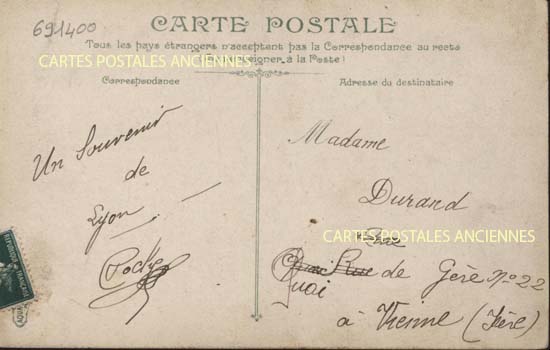 691400
CARTE POSTALE
Tous les pays étrangers n'acceptent pas la Correspondance au recto
(Se renseigner à la Poste)
CARTES POSTALES ANCIENNES
Correspondance
Adresse du destinataire
Un Souvenir
de
Lyon
Madame
Durand
CARTES POSTALES ANCIENNES
Quai de Gère No 22
à Vienne (Isère)